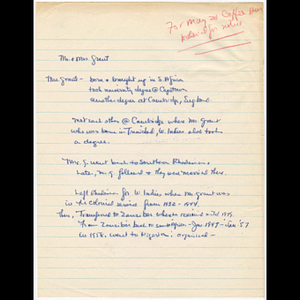 For May 20 Coffee Hour
material for
Mr. & Mrs. Grant
Mrs Grant - born & brought up in S. Africa
took university degree @ Capetown
another degree at Cambridge, England
Met each other @ Cambridge where Mr Grant
who was born in Trinidad, W. Indies also took
a degree.
Mrs. G. went back to Southern Rhodesia &
later, Mr. G followed & they were married there.
Left Rhodesia for W. Indies when Mr Grant was
in the Colonial service from 1932 - 1944.
then, Transferred to Zanzibar where
From Zanzibar back to - Jan 1947 - Jan '57
in 1958, went to Nigeria,